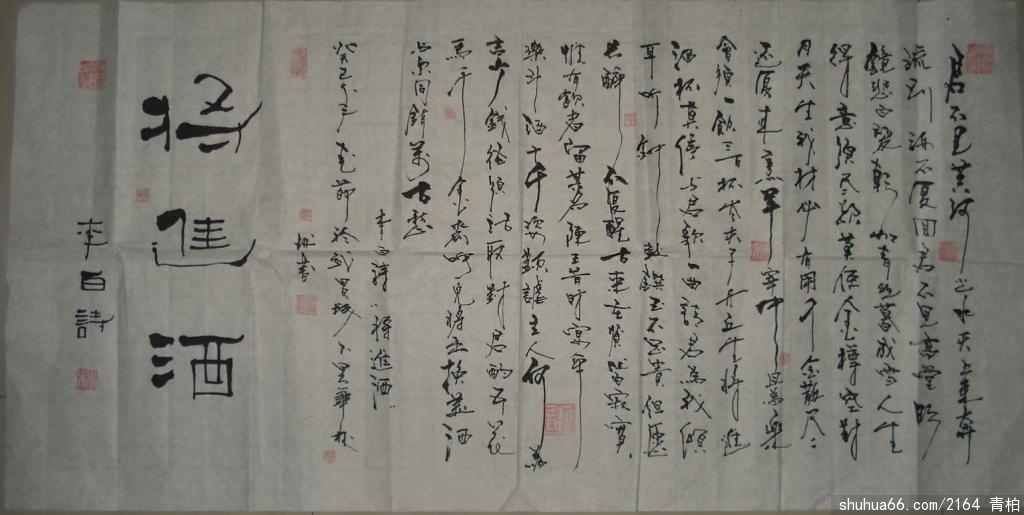 君不見黄河之水天上来奔
流到海不復回君不見高堂明
鏡悲白髮朝如青絲暮成雪人生
得意須尽歡莫使金樽空對
月天生我材必有用千金散尽
还復来烹羊宰牛且為樂
會須一飲三百杯岑夫子丹丘生将進
酒杯莫停与君歌一曲請君為我傾
耳听鐘鼓饌玉不足貴但愿
長醉不復醒古来圣賢皆寂寞
惟有飲者留其名陳王昔時宴平
樂斗酒十千恣歡謔主人何為
言少錢徑須沽取對君酌五花
馬千金裘呼兒将出換美酒
与尔同銷萬古愁
李白詩 将進酒
癸巳年
将進酒
李白詩
shuhua66.com/2164 青柏